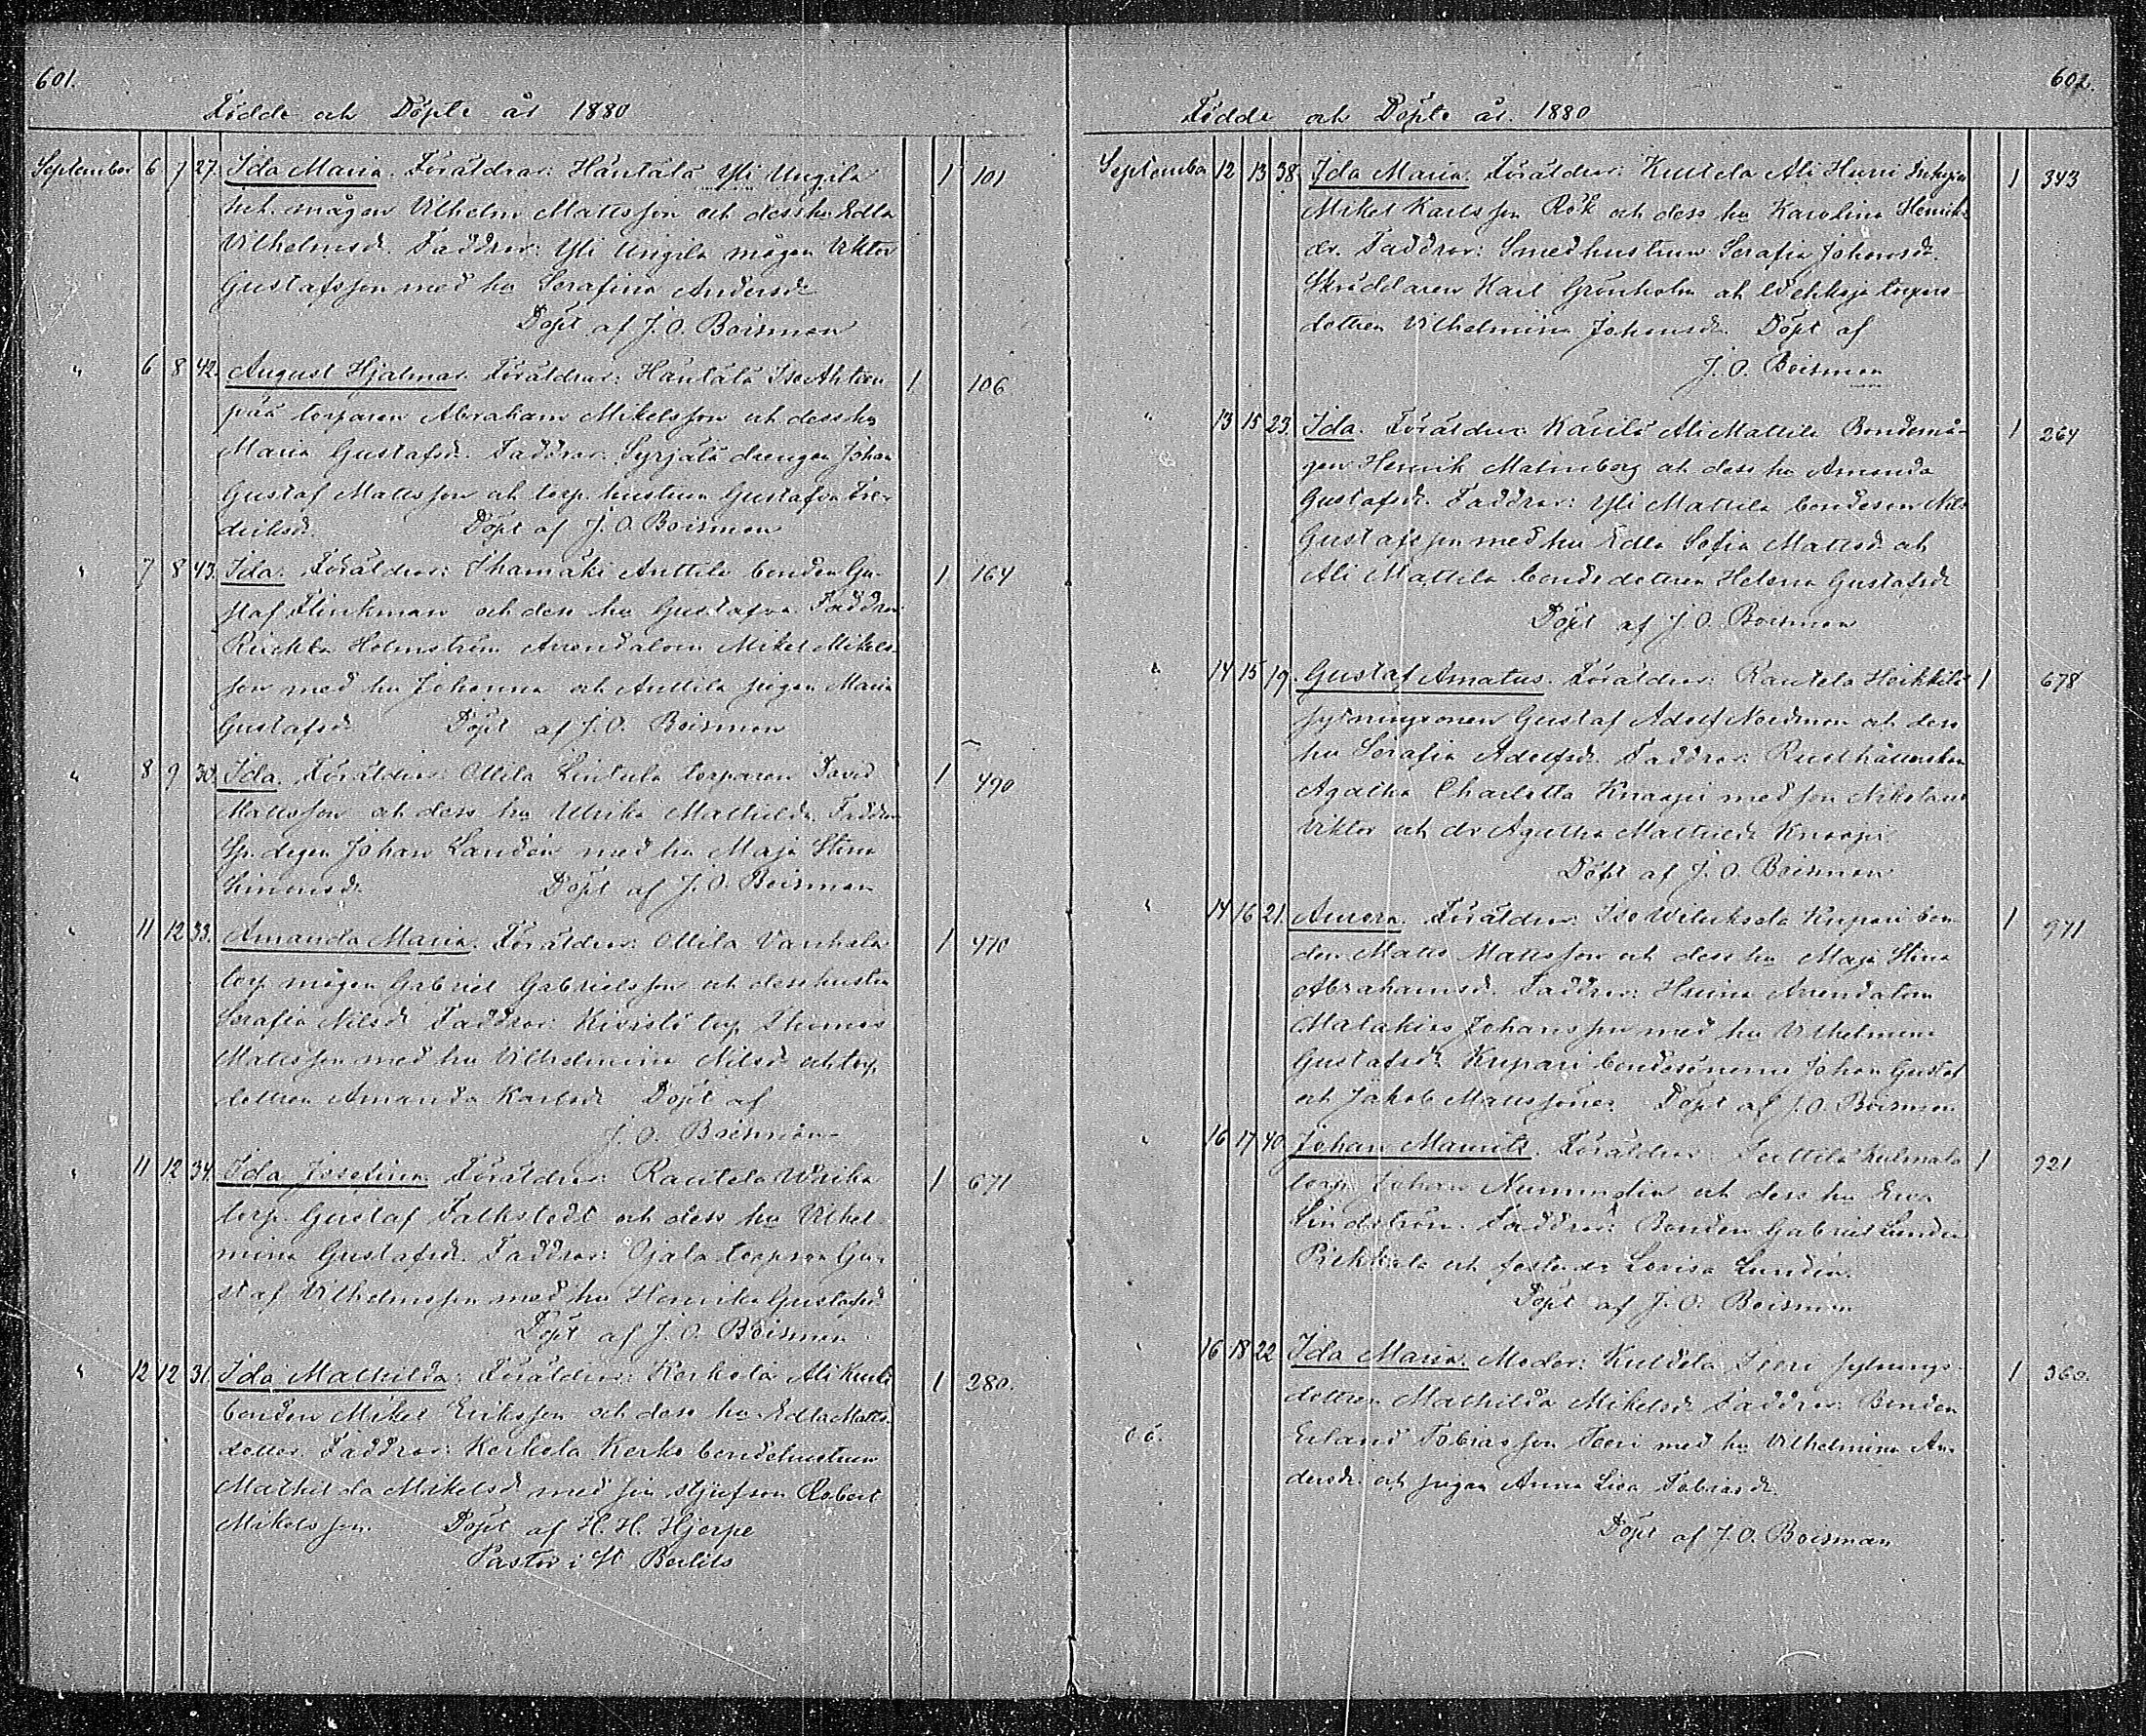 601.
Födde och Döpte år 1880
September 6 7 27. Ida Maria. Föräldrar: Hantala Yli Ungila 1 101
inh. mågen Vilhelm Mattsson och dess hu Edla
Vilhelmsd. Faddrar: Yli Ungila mågen Viktor
Gustafsson med hu Serafina Andersdr
Döpt af J. O. Boisman
" 6 8 42. August Hjalmar. Föräldrar: Hantala Iso Ahteen 1 106
pää torparen Abraham Mikelsson och dess hu
Maria Gustafsdr. Faddrar: Syrjälä drengen Johan
Gustaf Mattsson och torp. hustrun Gustafva Fre-
driksd. Döpt af J. O. Boisman
" 7 8 43. Ida. Föräldrar: Ihamäki Anttila bonden Gu- 1 164
staf Flinkman och dess hu Gustafva Faddrar
Holmström Arendatorn Mikel Mikels-
son med hu Johanna och Anttila pigan Maria
Gustafsd. Döpt af J. O. Boisman
" 8 9 38. Ida. Föräldrar: Ollila Lintula torparen David 1 490
Mattsson och dess hu Ulrika Mathilda. Faddrar
Johan Landén med hu Maja Stina
Simonsdr. Döpt af J. O. Boisman
" 11 12 33. Amanda Maria. Föräldrar: Ollila Vanhala 1 470
torp. mågen Gabriel Gabrielsson och dess hustru
Serafia Nilsdr Faddrar: Kivistö torp. Thomas
Mattsson med hu Vilhelmina Nilsd. och torp.
dottren Amanda Karlsdr Döpt af
J. O. Boisman
" 11 12 34. Ida Josefina. Föräldrar: Rautela 1 671
torp. Gustaf Falkstedt och dess hu Vilhel-
mina Gustafsd. Faddrar: Ojala torpson Gu-
staf Vilhelmsson med hu Henrika Gustafsd
Döpt af J. O. Boisman
" 12 12 31. Ida Mathilda. Föräldrar: Kerkola Ali 1 280.
bonden Mikel Eriksson och dess hu Edla Matts-
dotter. Faddrar: Kerkola Kerko bondehustrun
Mathilda Mikelsd med sin styfson Robert
Mikelsson. Döpt af H. H. Hjerpe
Pastor i St Bertils
602.
Födde och Döpte år 1880
September 12 13 38. Ida Maria. Föräldrar: Kustela Ali Hurri Inhysin 1 343
Mikel Karlsson Rök och dess hu Karolina Henriks-
dr. Faddrar: Smedhustrun Serafia Johansdr.
Skräddaren Karl Grönholm och torpare-
dottren Vilhelmina Johansdr. Döpt af
J. O. Boisman
" 13 15 23. Ida. Föräldrar: Ali Mattila Bondemå- 1 264
gen Henrik Malmborg och dess hu Amanda
Gustafsdr. Faddrar: Yli Mattila bondeson Nils
Gustafsson med hu Edla Sofia Mattsd. och
Ali Mattila bonde dottren Helena Gustafsdr
Döpt af J. O. Boisman
" 14 15 19. Gustaf Amatus. Föräldrar: Rautela Heikkilä 1 678
sytningsonen Gustaf Adolf Nordman och dess
hu Serafia Adolfsdr. Faddrar: Rusthållerskan
Agatha Charlotta Knaapi med son Nikolaus
Viktor och dr Agatha Mathilda Knaapi
Döpt af J. O. Boisman
" 14 16 21. Aurora. Föräldrar: Iso Wiluksela Kupari bon- 1 971
den Matts Mattsson och dess hu Maja Stina
Abrahamsd. Faddrar: Arendatorn
Malakias Johansson med hu Vilhelmina
Gustafsdr Kupari bondesönerne Johan Gustaf
och Jakob Mattssöner. Döpt af J. O. Boisman
" 16 17 40. Johan Mauritz. Föräldrar: Kulmala 1 921
torp. Johan Nummelin och dess hu Eva
Lindström. Faddrar: Bonden Gabriel Lundén
och Lovisa Lundén.
Döpt af J. O. Boisman
" 16 18 22 Ida Maria. Moder: Kuldela Teeri sytnings- 1 360.
dottren Mathilda Mikelsd. Faddrar: Bonden
o. ä. Erland Tobiasson Teeri med hu Vilhelmina An-
dersdr. och pigan Anna Lisa Tobiasdr.
Döpt af J. O. Boisman